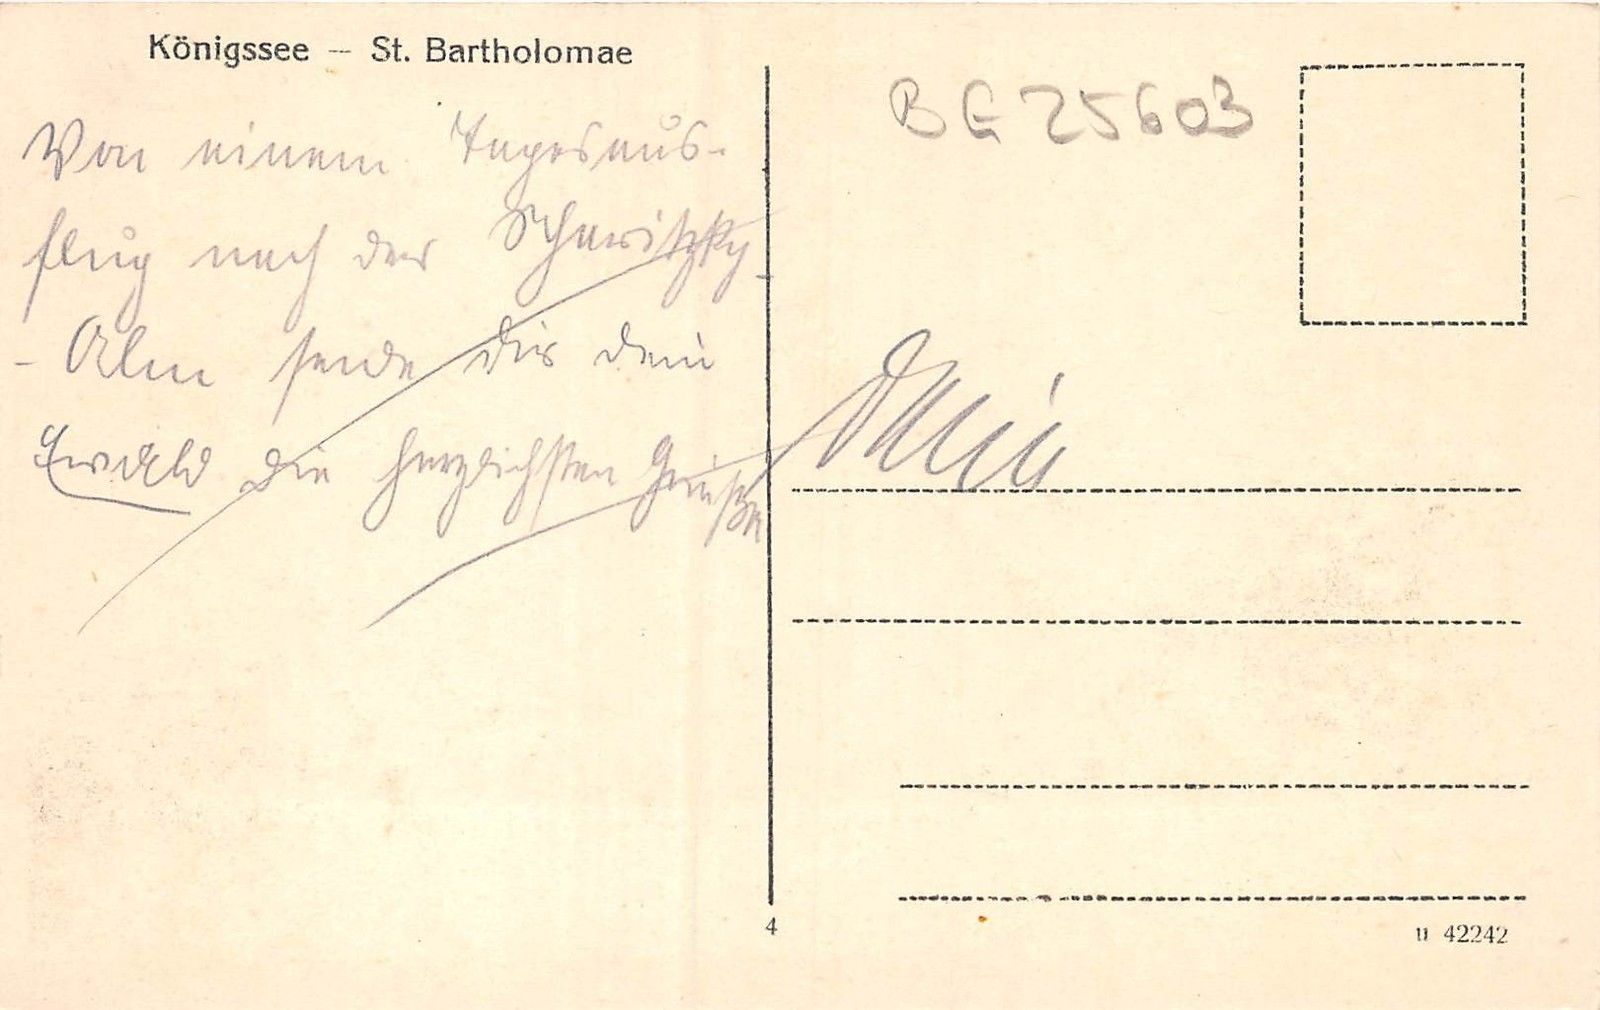 Königssee – St. Bartholomae
Von einem Tagesaus-
flug nach der Scharitzky-
- Alm sende dir dein
Ewald die herzlichsten Grüße
BG 25603
4
11 42242